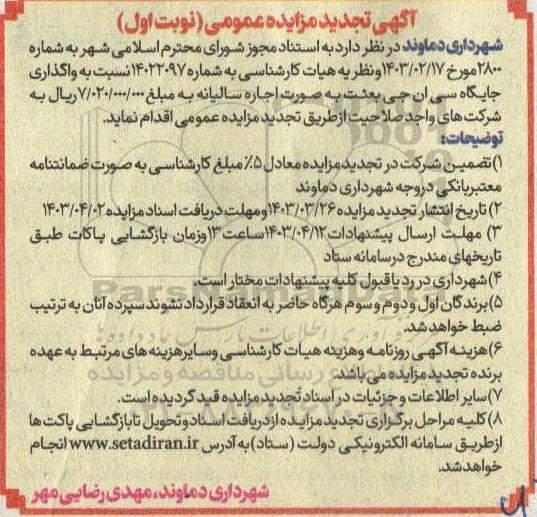 آگهی تجدید مزایده عمومی (نوبت اول)
شهرداری دماوند در نظر دارد به استناد مجوز شورای محترم اسلامی شهر به شماره
۲۸۰۰ مورخ ۱۴۰۳/۰۲/۱۷ و نظریه هیات کارشناسی به شماره ۱۴۰۲۲۰۹۷ نسبت به واگذاری
جایگاه سی ان جی بعثت به صورت اجاره سالیانه به مبلغ ۷/۰۲۰/۰۰۰/۰۰۰ ریال به
شرکت های واجد صلاحیت از طریق تجدید مزایده عمومی اقدام نماید.
توضیحات:
۱) تضمین شرکت در تجدید مزایده معادل ۵٪ مبلغ کارشناسی به صورت ضمانتنامه
معتبر بانکی در وجه شهرداری دماوند
۲) تاریخ انتشار تجدید مزایده ۱۴۰۳/۰۳/۲۶ و مهلت دریافت اسناد مزایده ۱۴۰۳/۰۴/۰۲
۳) مهلت ارسال پیشنهادات ۱۴۰۳/۰۴/۱۲ ساعت ۱۳ و زمان بازگشایی پاکات طبق
تاریخهای مندرج در سامانه ستاد
۴) شهرداری در رد یا قبول کلیه پیشنهادات مختار است.
۵) برندگان اول و دوم و سوم هرگاه حاضر به انعقاد قرارداد نشوند سپرده آنان به ترتیب
ضبط خواهد شد.
۶) هزینه آگهی روزنامه و هزینه هیات کارشناسی و سایر هزینه های مرتبط به عهده
برنده تجدید مزایده می باشد.
۷) سایر اطلاعات و جزئیات در اسناد تجدید مزایده قید گردیده است.
۸) کلیه مراحل برگزاری تجدید مزایده از دریافت اسناد و تحویل تا بازگشایی پاکت ها
از طریق سامانه الکترونیکی دولت (ستاد) به آدرس www.setadiran.ir انجام
خواهد شد.
شهرداری دماوند، مهدی رضایی مهر